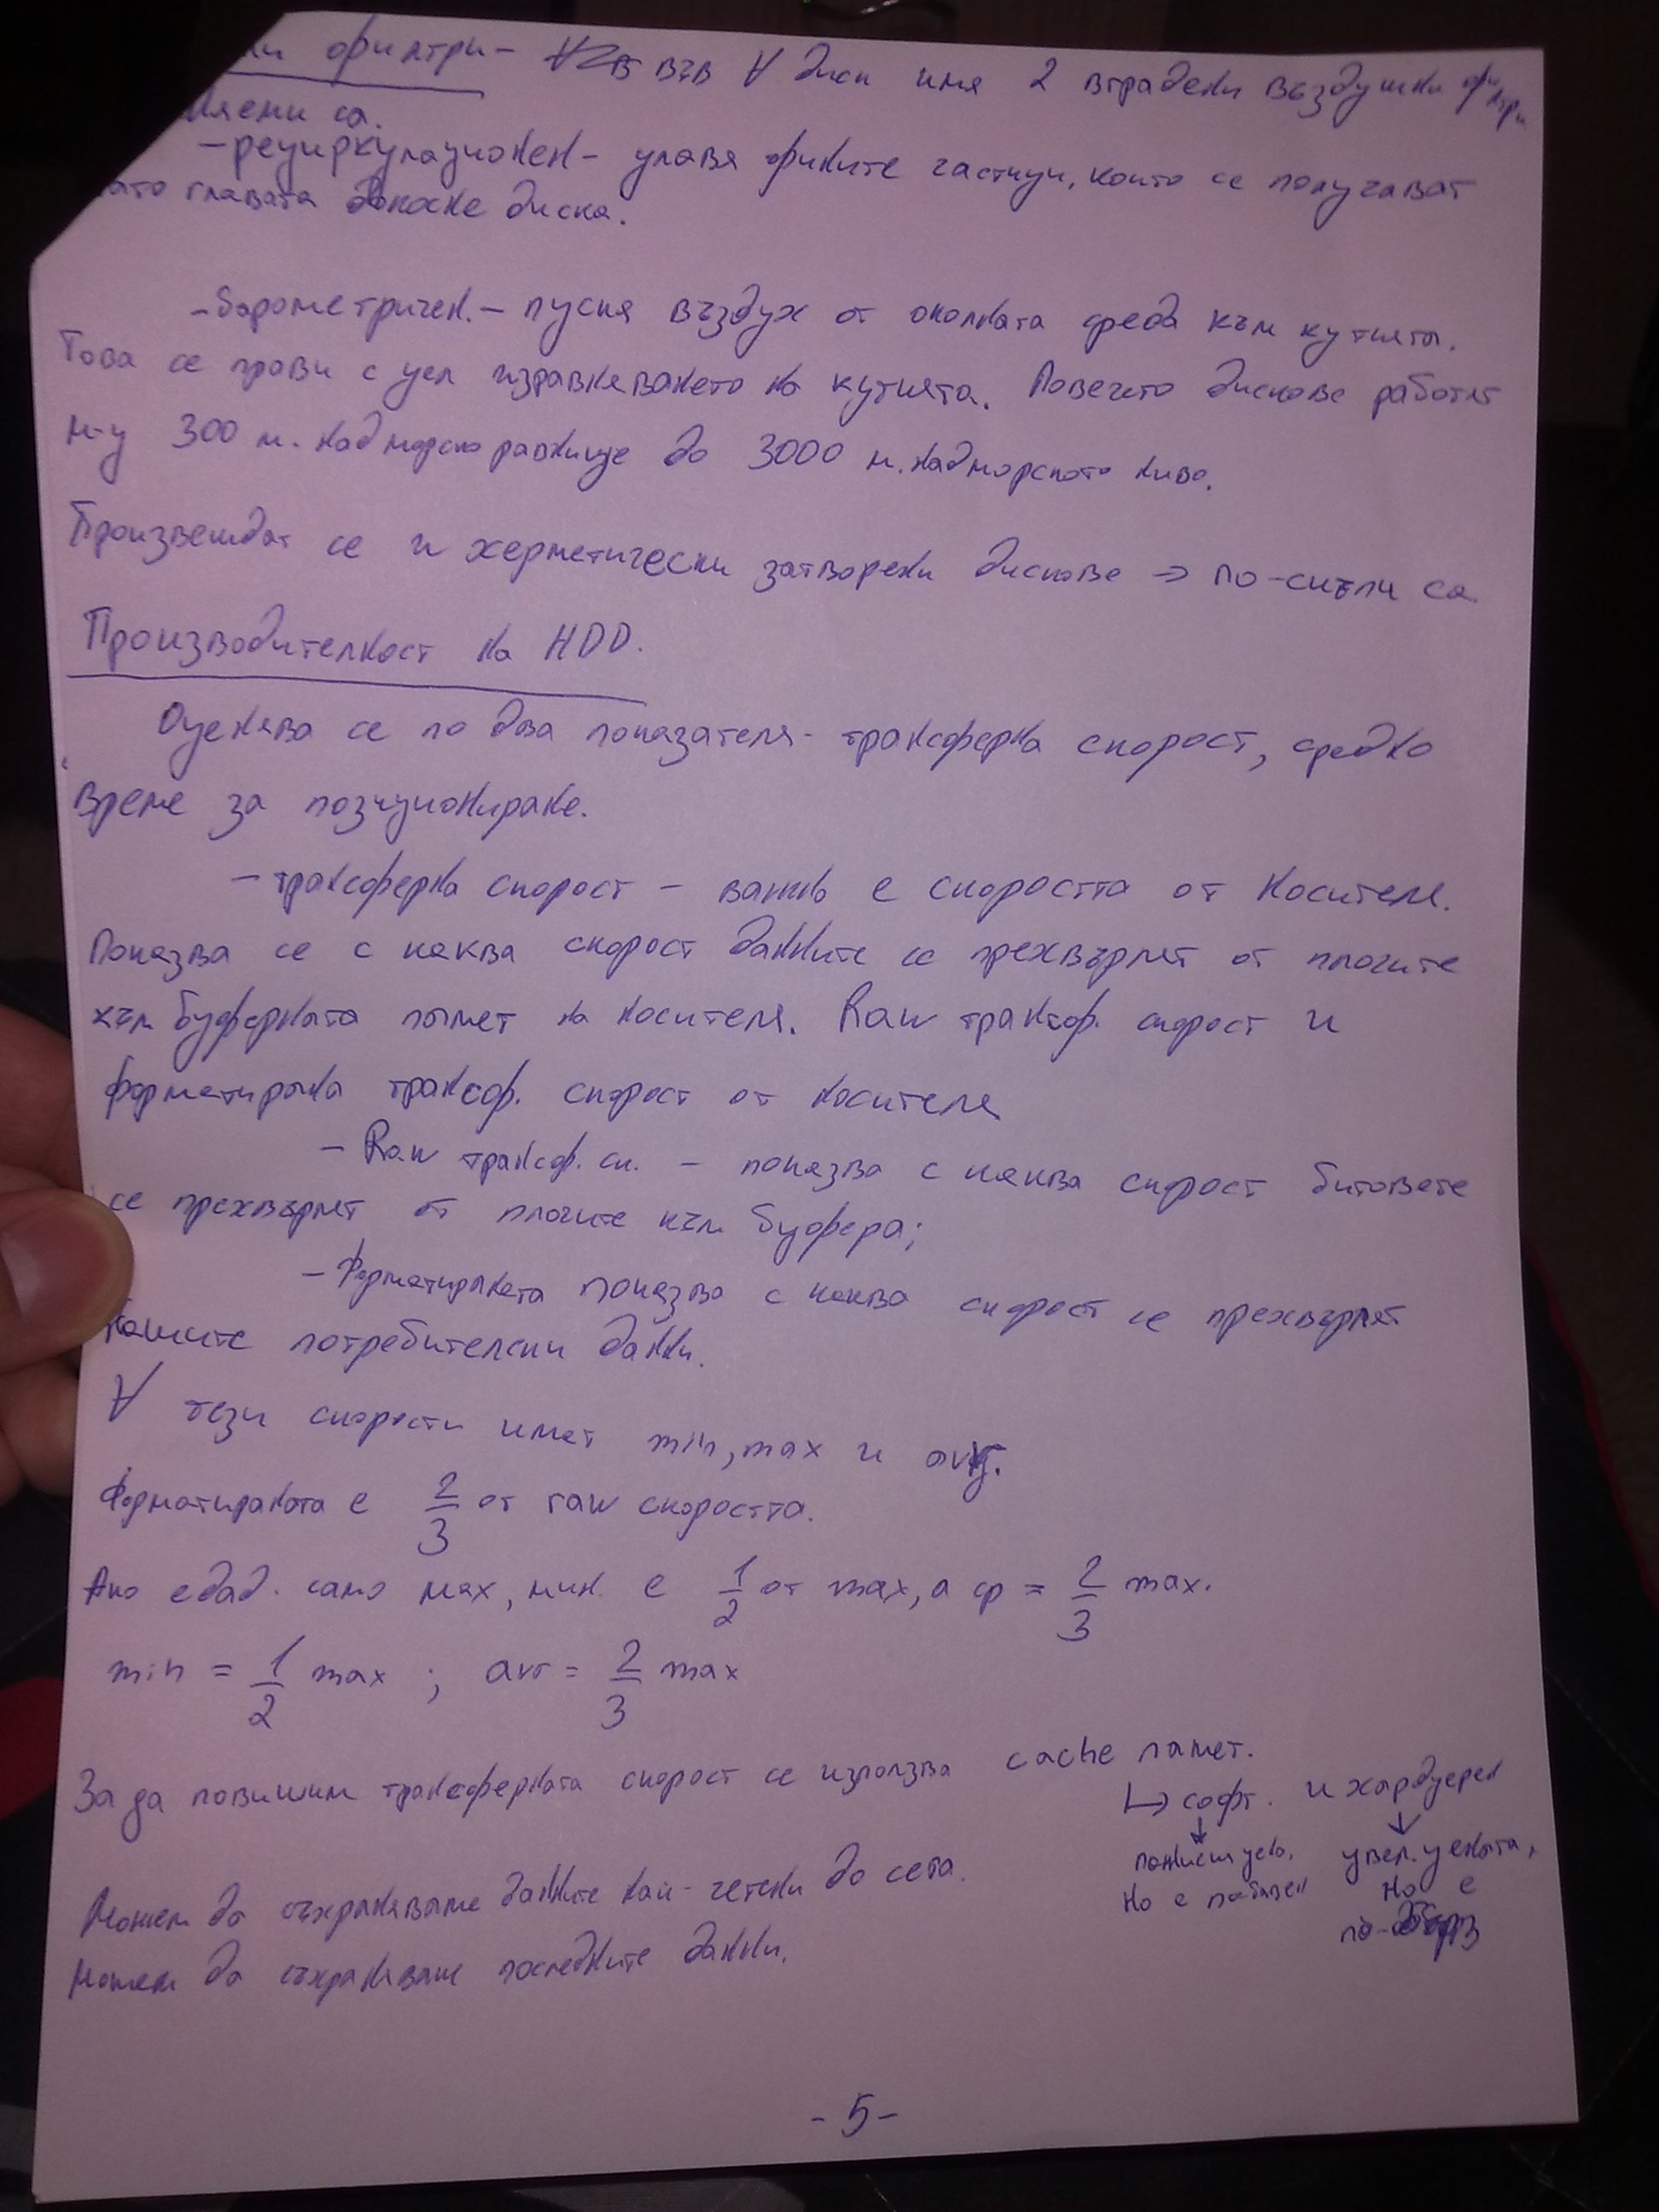 ни филтри - във ∀ диск има 2 вградени въздушни филтри
са.
- рециркулационен - улавя фините частици, които се получават
като главата докосне диска.
- барометричен. - пуска въздух от околната среда към кутията.
Това се прави с цел изравняването на кутията. Повечето дискове работят
м-у 300 м. надморско равнище до 3000 м. надморското ниво.
Произвеждат се и херметически затворени дискове → по-скъпи са
Производителност на HDD.
Оценява се по два показателя - трансферна скорост, средно
време за позициониране.
- трансферна скорост - важна е скоростта от носителя.
Показва се с каква скорост данните се прехвърлят от плочите
към буферната памет на носителя. Raw трансф. скорост и
форматирана трансф. скорост от носителя
- Raw трансф. ск. - показва с каква скорост битовете
се прехвърлят от плочите към буфера;
- Форматираната показва с каква скорост се прехвърлят
нашите потребителски данни.
∀ тези скорости имат min, max и avg.
Форматираната е 2/3 от raw скоростта.
Ако е дад. само мах, мин. е 1/2 от max, а ср = 2/3 max.
min = 1/2 max ; avr = 2/3 max
За да повишим трансферната скорост се използва cache памет.
↳ софт. и хардуерен
↓ ↓
понижен цена, увел. цената,
но е по-бавен но е
по-бърз
Можем да съхраняваме данните най-четени до сега.
Можем да съхраняваме последните данни.
- 5 -